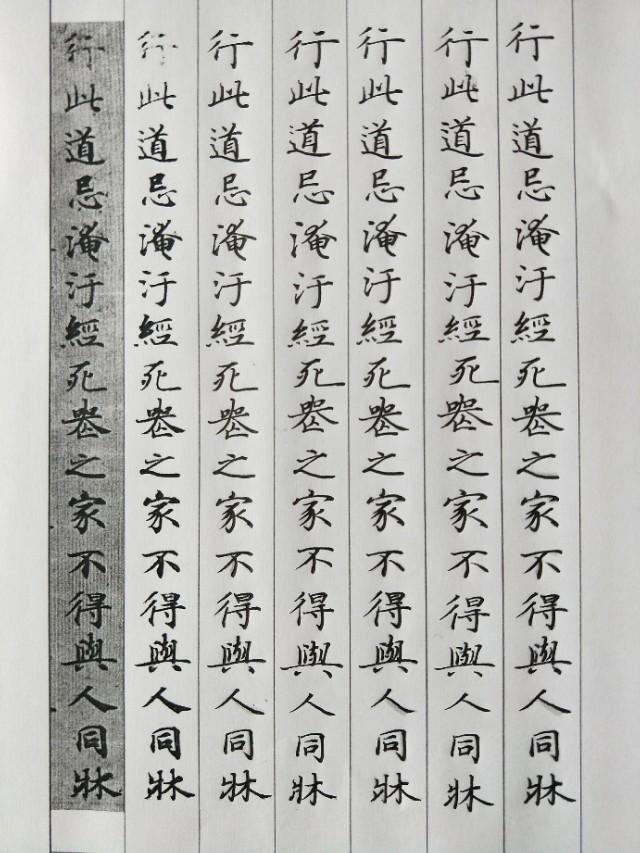 行此道忌淹汙經死喪之家不得與人同牀
行此道忌淹汙經死喪之家不得與人同牀
行此道忌淹汙經死喪之家不得與人同牀
行此道忌淹汙經死喪之家不得與人同牀
行此道忌淹汙經死喪之家不得與人同牀
行此道忌淹汙經死喪之家不得與人同牀
行此道忌淹汙經死喪之家不得與人同牀